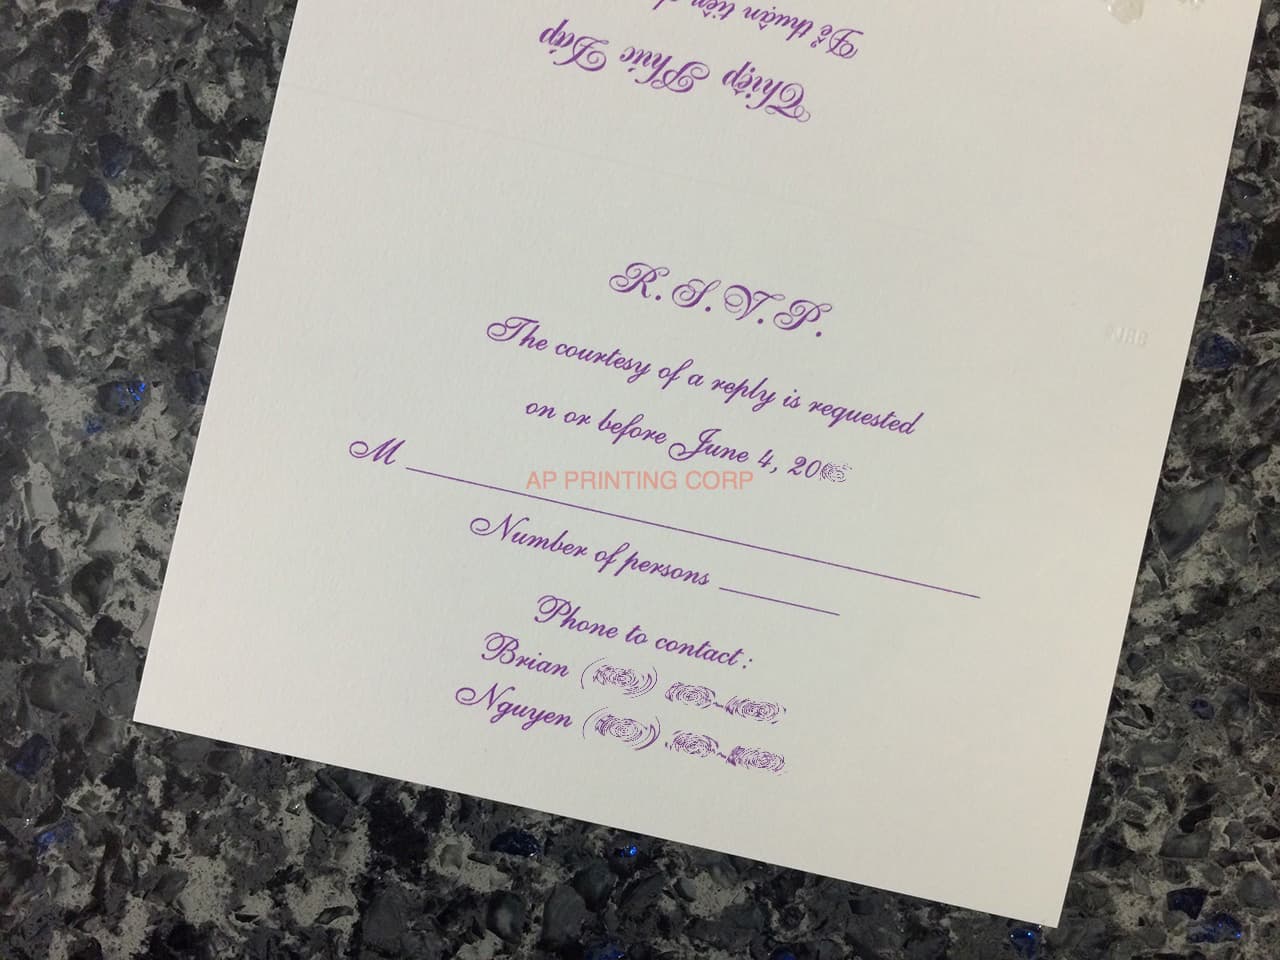 Để thuận tiện
Thiệp Phúc Đáp
R.S.V.P.
The courtesy of a reply is requested
on or before June 4, 20
M
AP PRINTING CORP
Number of persons
Phone to contact:
Brian
Nguyen